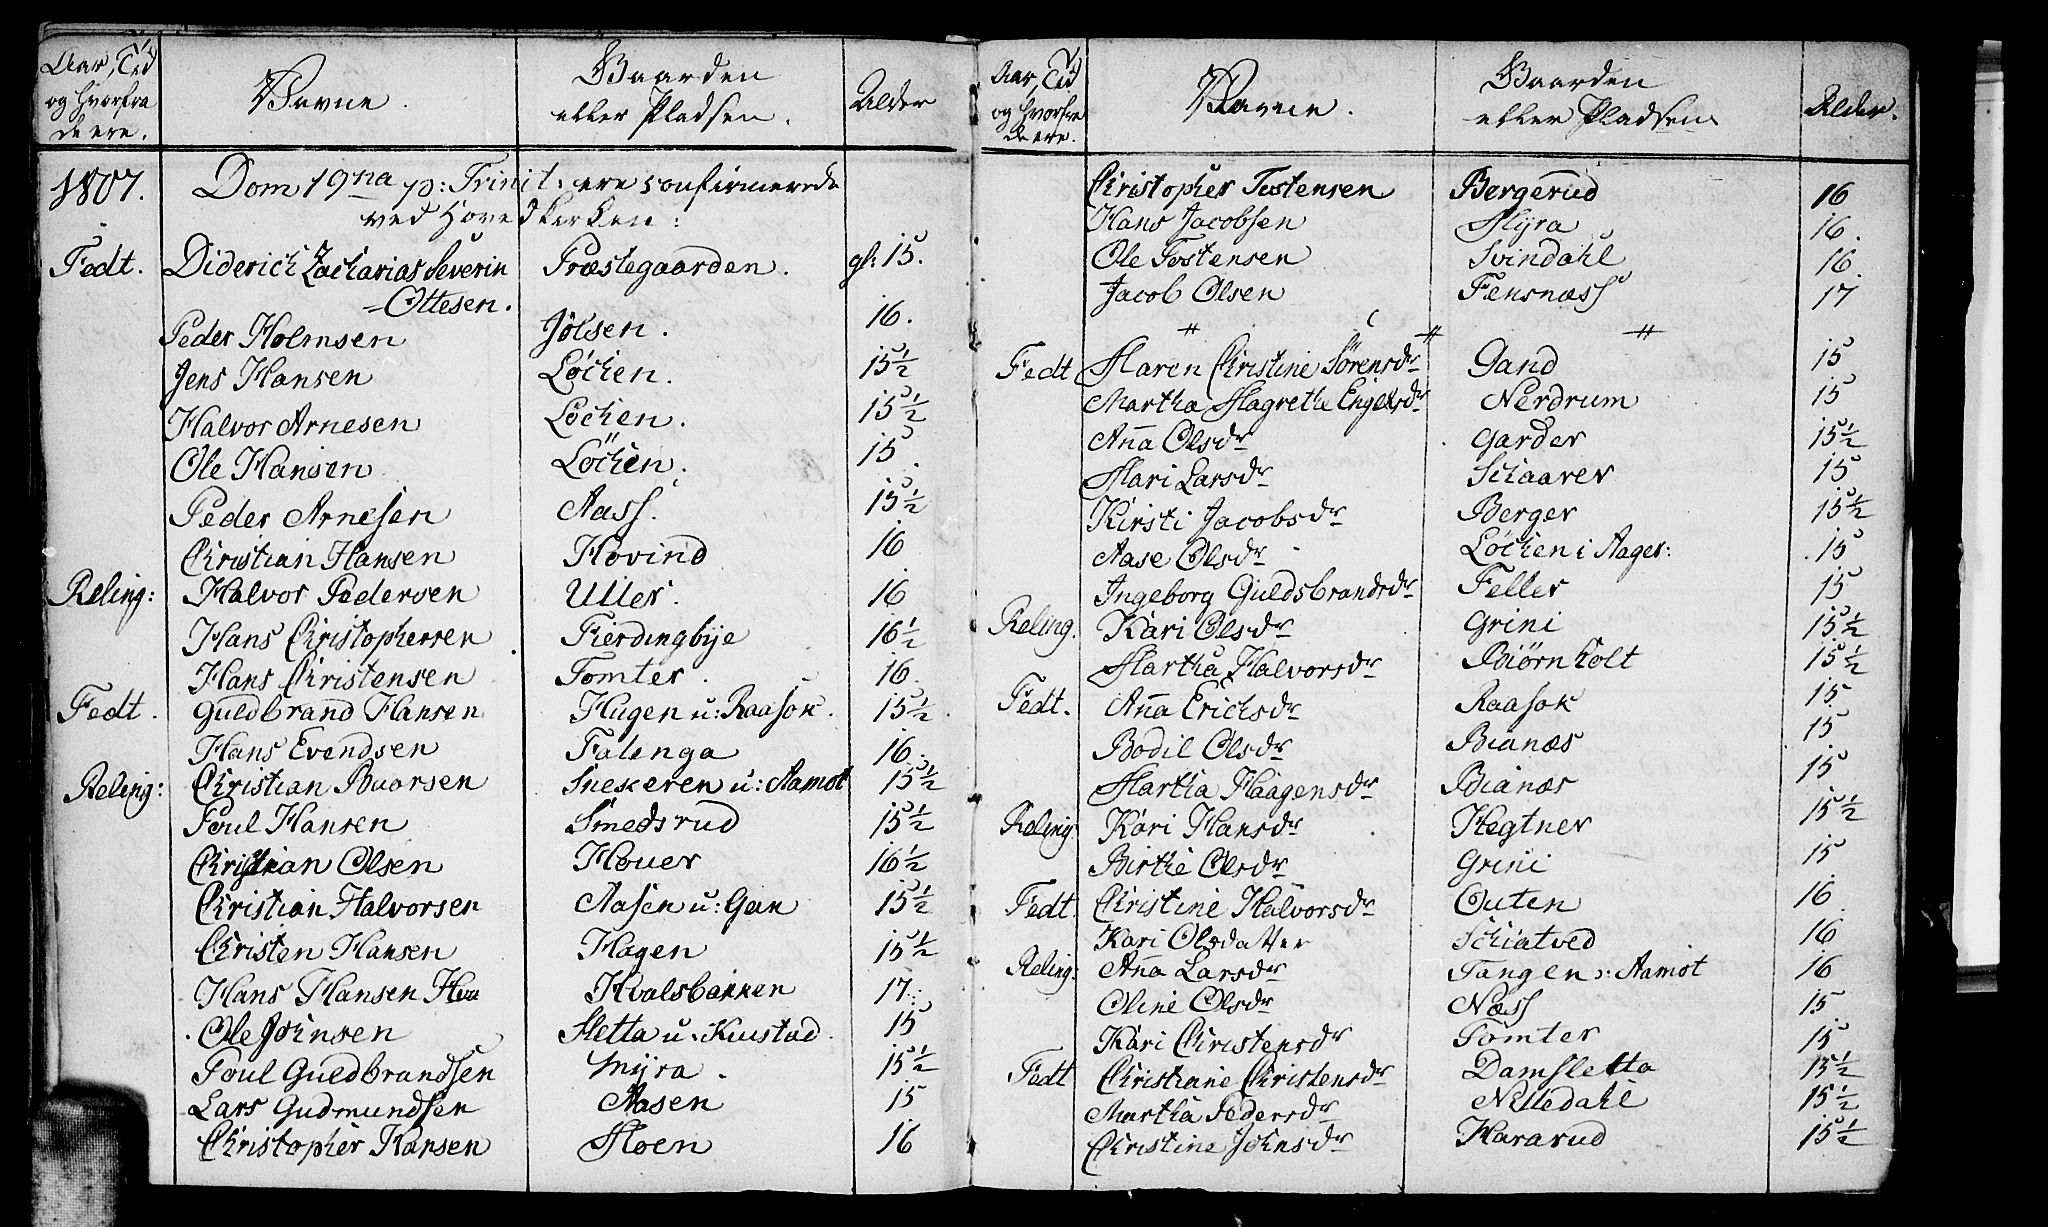 Aar, Tid og hvorfra de ere. Navne. Gaarden eller Pladsen. Alder
1807. Dom 19na p: Trinit: ere confirmerede
ved Hovedkirken:
Fedt. Diderich Zacharias Severin Præstegaarden. gl: 15.
=Ottesen.
Peder Holmsen Jølsen. 16.
Jens Hansen Løchen. 15 1/2
Halvor Arnesen Løchen. 15 1/2
Ole Hansen Løchen. 15.
Peder Arnesen Aass. 15 1/2
Christian Hansen Hovind 16
Reling: Halvor Pedersen Uller. 16
Hans Christophersen Fierdingbye 16 1/2
Hans Christensen Tomter. 16.
Fedt. Guldbrand Hansen Hagen u: Raasok. 15 1/2
Hans Evendsen Falenga 16.
Reling: Christian Baarsen Snekeren u: Aamot 15 1/2
Poul Hansen Smedsrud 15 1/2
Christian Olsen Houer 16 1/2
Christian Halvorsen Aasen u: Gan 15 1/2
Christen Hansen Hagen 15 1/2
Hans Hansen Kvalsbakken 17.
Ole Johnsen Sletta u: Kiustad 15
Poul Guldbrandsen Myra. 15 1/2
Lars Gudmundsen Aasen 15
Christopher Hansen Moen 16
Aar, Tid og hvorfra de ere. Navne. Gaarden eller Pladsen Alder.
Christopher Tostensen Bergerud 16
Hans Jacobsen Myra 16.
Ole Tostensen Svindahl 16.
Jacob Olsen Fensnæss 17
Fedt Maren Christine Sörensdr Gand 15
Martha Magrethe Engelsdr Nerdrum 15
Aña Olsdr Garder 15 1/2
Mari Larsdr Schaarer 15
Kirsti Jacobsdr Berger 15 1/2
Aase Olsdr Løchen i Aager: 15
Ingeborg Guldsbrandsdr Feller 15
Reling. Kari Olsdr Grini 15 1/2
Martha Halvorsdr Biørnholt 15 1/2
Fedt. Aña Erichsdr Raasok 15
Bodil Olsdr Bianæs 15
Martha Haagensdr Bianæs 15
Reling Kari Hansdr Hegtner 15 1/2
Birthe Olsdr Grini 15
Fedt. Christine Halvorsdr Outen 16.
Kari Olsdatter Schiatved 16
Reling: Aña Larsdr Tangen u: Aamot 16
Oline Olsdr Næss 15
Kari Christensdr Tomter 15
Fedt Christiane Christensdr Damsletta 15 1/2
Martha Pedersdr Nittedahl 15 1/2
Christine Johnsdr Hararud 15 1/2